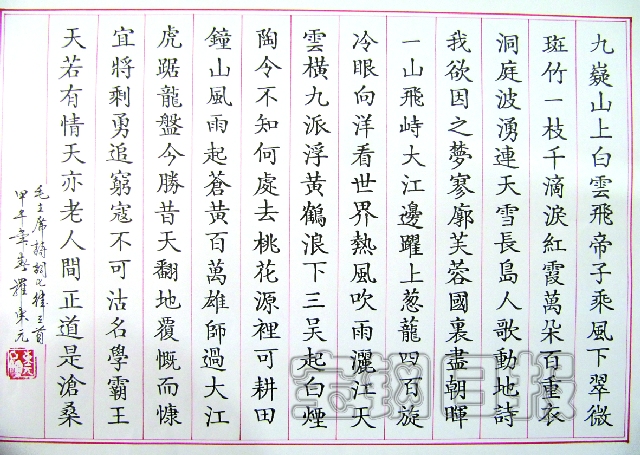 九嶷山上白雲飛帝子乘風下翠微
斑竹一枝千滴淚紅霞萬朵百重衣
洞庭波湧連天雪長島人歌動地詩
我欲因之夢寥廓芙蓉國裏盡朝暉
一山飛峙大江邊躍上葱龍四百旋
冷眼向洋看世界熱風吹雨灑江天
雲橫九派浮黃鶴浪下三吳起白煙
陶令不知何處去桃花源裡可耕田
鐘山風雨起蒼黃百萬雄師過大江
虎踞龍盤今勝昔天翻地覆慨而慷
宜將剩勇追窮寇不可沽名學霸王
天若有情天亦老人間正道是滄桑
毛主席詩詞七律三首
甲午年春羅東元
宝钢日报